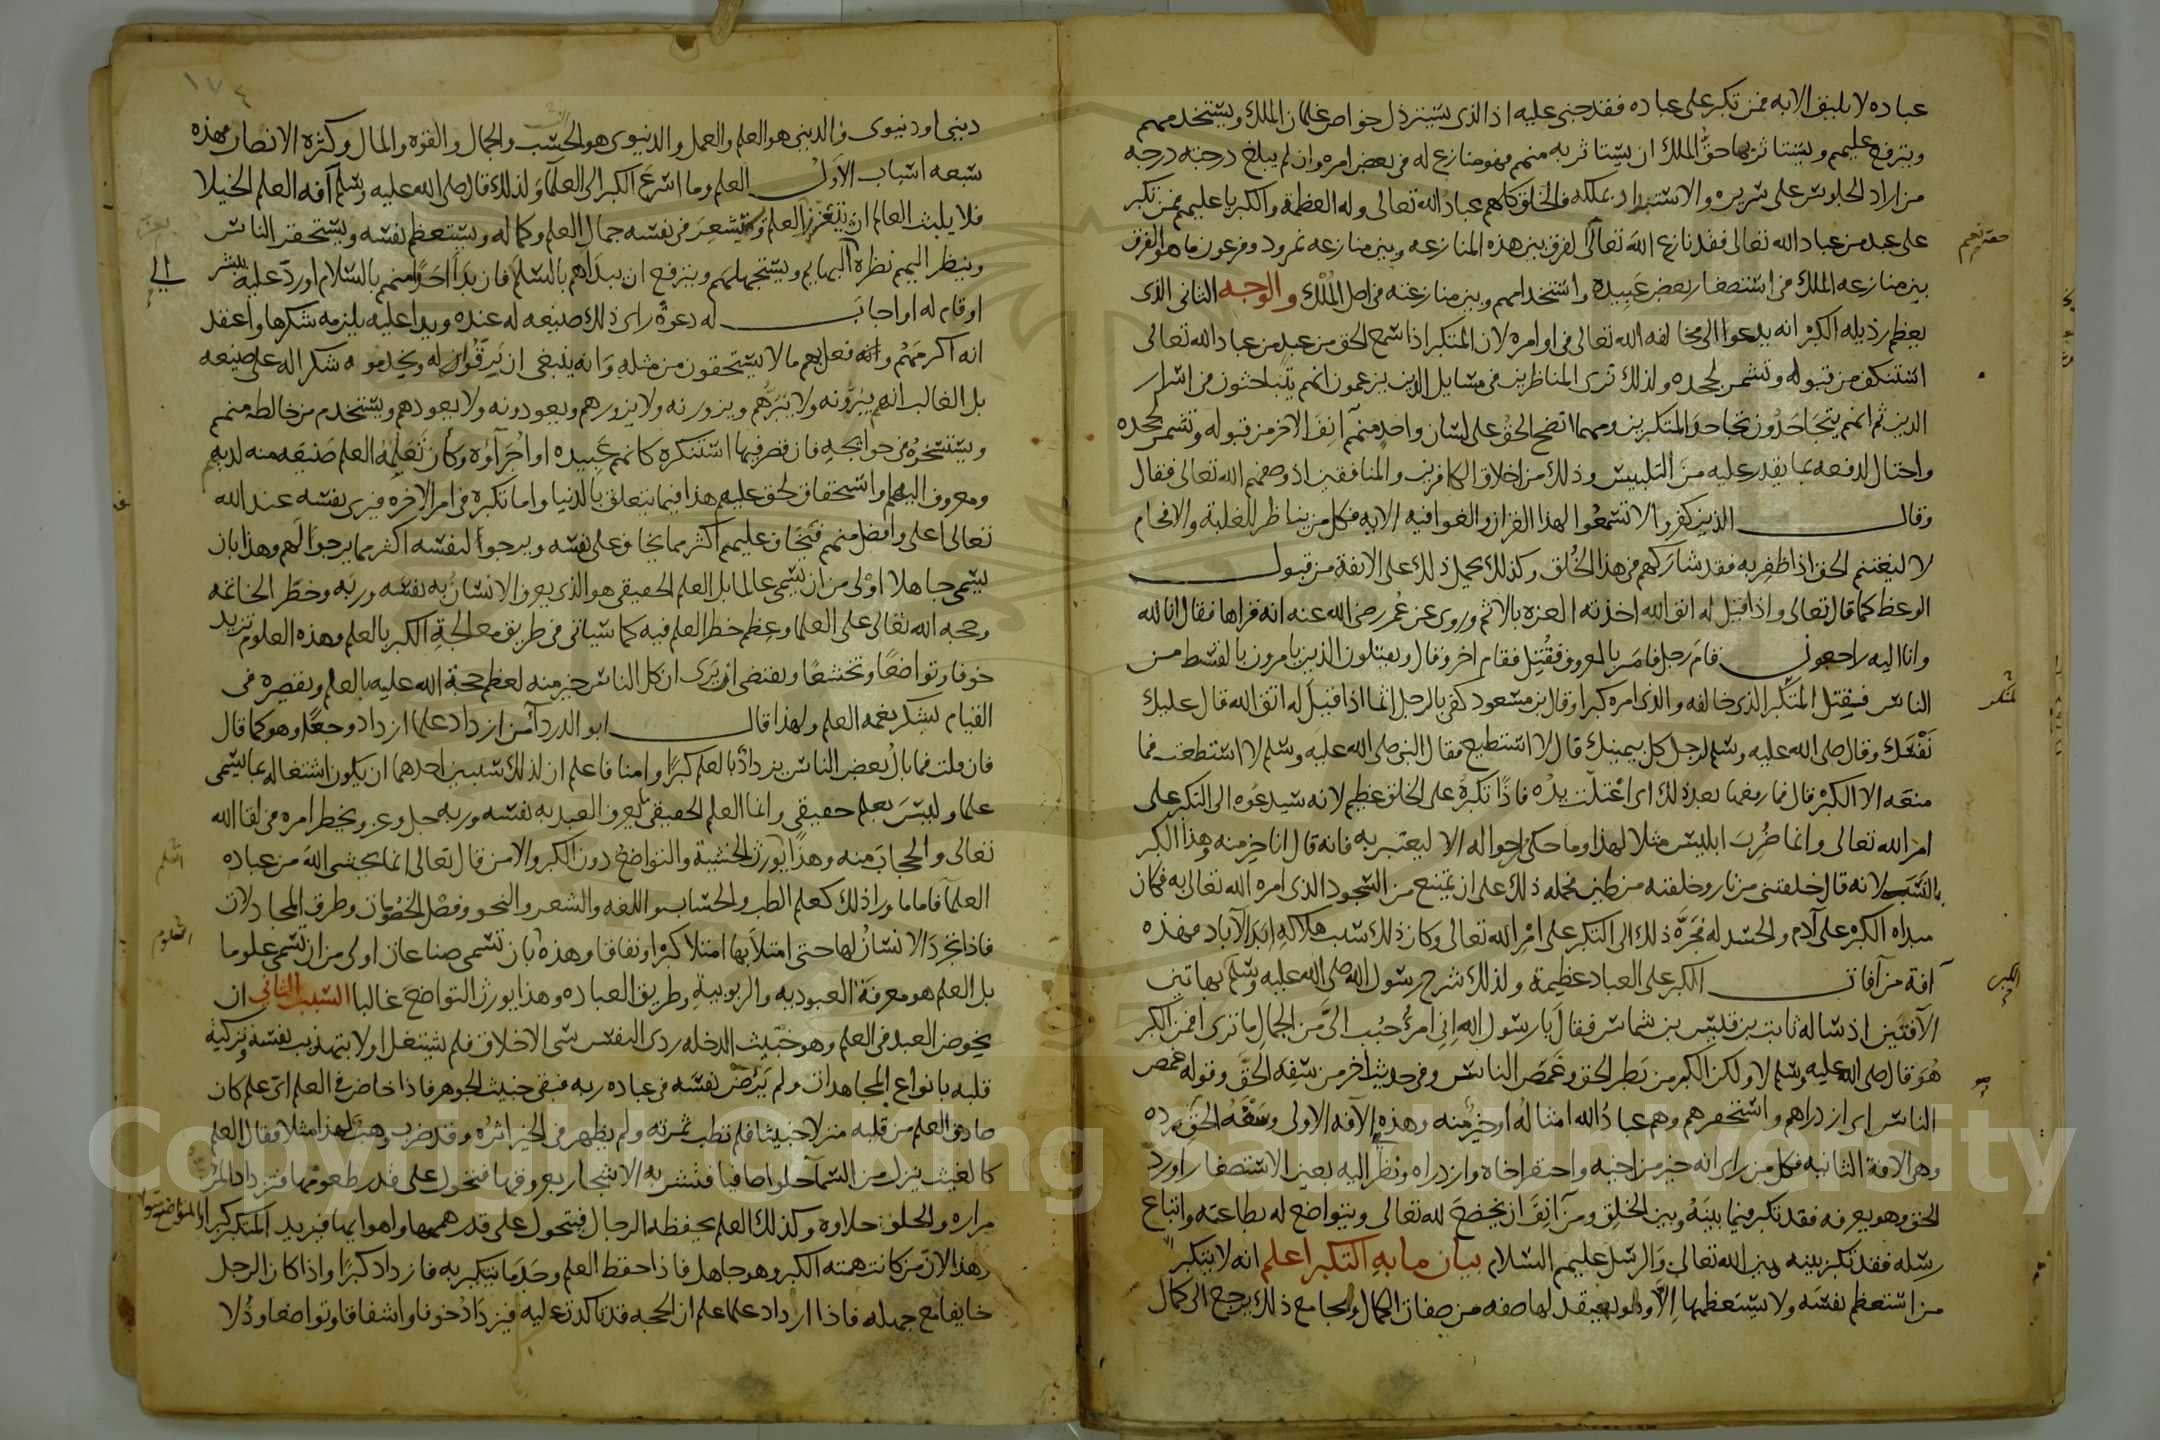 عباده لا يليق الا به فمن تكبر على عباده فقد جنى عليه اذ الذي يسترذل خواص غلمان الملك ويستخدمهم
ويترفع عليهم ويستاثر بما حق الملك ان يستاثر به منهم فهو منازع له في بعض امره وان لم يبلغ درجته درجة
من اراد الجلوس على سريره والاستبداد بملكه فالخلق كلهم عباد الله تعالى وله العظمة والكبريا عليهم فمن تكبر
على عبد من عباد الله تعالى فقد نازع الله تعالى نعم الفرق بين هذه المنازعه وبين منازعه نمرود وفرعون ما هو الفرق
بين منازعه الملك في استصغار بعض عبيده واستخدامهم وبين منازعته في اصل الملك والوجه الثاني الذي
يعظم رذيله الكبر انه يدعوا الى مخالفه الله تعالى في اوامره لان المتكبر اذا سمع الحق من عبد من عباد الله تعالى
استنكف من قبوله وتشمر لجحده ولذلك ترى المناظرين في مسايل الدين يزعمون انهم يتباحثون في اسرار
الدين ثم انهم يتجاحدون تجاحد المتكبرين ومهما اتضح الحق على لسان واحد منهم انف الاخر من قبوله وتشمر لجحده
واحتال لدفعه بما يقدر عليه من التلبيس وذلك من اخلاق الكافرين والمنافقين اذ وصفهم الله تعالى فقال
وقال الذين كفروا لا تسمعوا لهذا القران والغوا فيه الايه فكل من يناظر للغلبة والافحام
لا ليغتنم الحق اذا ظفر به فقد شاركهم في هذا الخلق وكذلك يحمل ذلك على الانفة من قبول
الوعظ كما قال تعالى واذا قيل له اتق الله اخذته العزه بالاثم وروي عن عمر رضي الله عنه انه قراها فقال انا لله
وانا اليه راجعون قام رجل فامر بالمعروف فقتل فقام اخر وقال ويقتلون الذين يامرون بالقسط من
الناس فقتل المتكبر الذي خالفه والذي امره كبرا وقال بن مسعود كفى بالرجل اثما اذا قيل له اتق الله قال عليك
نفسك وقال صلى الله عليه وسلم لرجل كل بيمينك قال لا استطيع فقال النبي صلى الله عليه وسلم لا استطعت فما
منعه الا الكبر قال فما رفعها بعد ذلك اي اعتلت يده فاذا تكبره على الخلق عظيم لانه سيدعوه الى التكبر على
امر الله تعالى وانما ضرب ابليس مثلا لهذا وما حكى احواله الا ليعتبر به فانه قال انا خير منه وهذا الكبر
بالنسب لانه قال خلقتني من نار وخلقته من طين فحمله ذلك على ان يمتنع من السجود الذي امره الله تعالى به فكان
مبداه الكبر على آدم والحسد له فجره ذلك الى التكبر على امر الله تعالى وكان ذلك سبب هلاكه ابد الآباد فهذه
آفة من آفات الكبر على العباد عظيمة ولذلك شرح رسول الله صلى الله عليه وسلم بهاتين
الآفتين اذ ساله ثابت بن قيس بن شماس فقال يا رسول الله اني امرؤ حبب الي من الجمال ما ترى افمن الكبر
هو قال صلى الله عليه وسلم لا ولكن الكبر من بطر الحق وغمص الناس وفي حديث اخر من سفه الحق وقوله غمص
الناس اي ازدراهم واستحقرهم وهم عباد الله امثاله او خير منه وهذه الآفه الاولى وسفه الحق رده
وهي الافة الثانيه فكل من راى انه خير من اخيه واحتقر اخاه وازدراه ونظر اليه بعين الاستصغار او رد
الحق وهو يعرفه فقد تكبر فيما بينه وبين الخلق ومن انف ان يخضع لله تعالى ويتواضع له بطاعته واتباع
رسله فقد تكبر بينه وبين الله تعالى والرسل عليهم السلام بيان ما به التكبر اعلم انه لا يتكبر
من استعظم نفسه ولا يستعظمها الا وهو يعتقد لها صفه من صفات الكمال ومجامع ذلك يرجع الى كمال
المتكبر
الكبر
١٧٤
ديني او دنيوي والديني هو العلم والعمل والدنيوي هو الحسب والجمال والقوة والمال وكثرة الانصار فهذه
سبعه اسباب الاول العلم وما اسرع الكبر الى العلما ولذلك قال صلى الله عليه وسلم آفه العلم الخيلا
فلا يلبث العالم ان يتعزز بالعلم ويستشعر في نفسه جمال العلم وكماله ويستعظم نفسه ويستحقر الناس
وينظر اليهم نظره الى البهايم ويستجهلهم ويترفع ان يبداهم بالسلام فان بدا احدا منهم بالسلام او رد عليه ببشر
او قام له او اجاب له دعوة راى ذلك صنيعه له عنده ويدا عليه يلزمه شكرها واعتقد
انه اكرمهم وانه فعل بهم ما لا يستحقون من مثله وانه ينبغي ان يرقوا له ويخدموه شكرا له على صنيعه
بل الغالب انهم يبرونه ولا يبرهم ويزورنه ولا يزورهم ويعودونه ولا يعودهم ويستخدم من خالطه منهم
ويستسخره في حوايجه فان قصر فيها استنكره كانهم عبيده او اجراؤه وكان تعليمه العلم صنيعه منه لديهم
ومعروف اليهم واستحقاق لحق عليهم هذا فيما يتعلق بالدنيا واما تكبره في امر الاخره فيرى نفسه عند الله
تعالى اعلى وافضل منهم فيخاف عليهم اكثر مما يخاف على نفسه ويرجوا لنفسه اكثر مما يرجوا لهم وهذا بان
يسمى جاهلا اولى من ان يسمى عالما بل العلم الحقيقي هو الذي يعرف الانسان به نفسه وربه وخطر الخاتمه
وحجه الله تعالى على العلما وعظم خطر العلم فيه كما سياتي في طريق معالجة الكبر بالعلم وهذه العلوم تزيد
خوفا وتواضعا وتخشعا ويقتضي ان يرى ان كل الناس خير منه لعظم حجة الله عليه بالعلم وتقصيره في
القيام بشكر نعمه العلم ولهذا قال ابو الدردا من ازداد علما ازداد وجعا وهو كما قال
فان قلت فما بال بعض الناس يزداد بالعلم كبرا وامنا فاعلم ان لذلك سببين احدهما ان يكون اشتغاله بما يسمى
علما وليس بعلم حقيقي وانما العلم الحقيقي ما يعرف العبد به نفسه وربه جل وعز وخطر امره في لقا الله
تعالى والحجاب منه وهذا يورث الخشية والتواضع دون الكبر والامن قال تعالى انما يخشى الله من عباده
العلما فاما ما ورا ذلك كعلم الطب والحساب واللغه والشعر والنحو وفصل الخصومات وطرق المجادلات
فاذا تجرد الانسان لها حتى امتلا بها امتلا كبرا ونفاقا وهذه بان تسمى صناعات اولى من ان تسمى علوما
بل العلم هو معرفة العبوديه والربوبية وطريق العباده وهذا يورث التواضع غالبا السبب الثاني ان
يخوض العبد في العلم وهو خبيث الدخله ردي النفس سيئ الاخلاق فلم يشتغل اولا بتهذيب نفسه وتزكية
قلبه بانواع المجاهدات ولم يرض نفسه في عباده ربه فبقي خبيث الجوهر فاذا خاض في العلم اي علم كان
صادف العلم من قلبه منزلا خبيثا فلم يطب ثمرته ولم يظهر في الخير اثره وقد ضرب وهب لهذا مثلا فقال العلم
كالغيث ينزل من السما حلوا صافيا فتشربه الاشجار بعروقها فتحول على قدر طعومها فتزداد المر
مراره والحلو حلاوه وكذلك العلم يحفظه الرجال فيتحول على قدر هممها واهوايها فيزيد المتكبر كبرا والمتواضع تواضعا
وهذا لان من كانت همته الكبر وهو جاهل فاذا حفظ العلم وجد ما يتكبر به فازداد كبرا واذا كان الرجل
خايفا مع جهله فاذا ازداد علما علم ان الحجه قد تاكدت عليه فيزداد خوفا واشفاقا وتواضعا وذلا
الى
العلم
العلوم